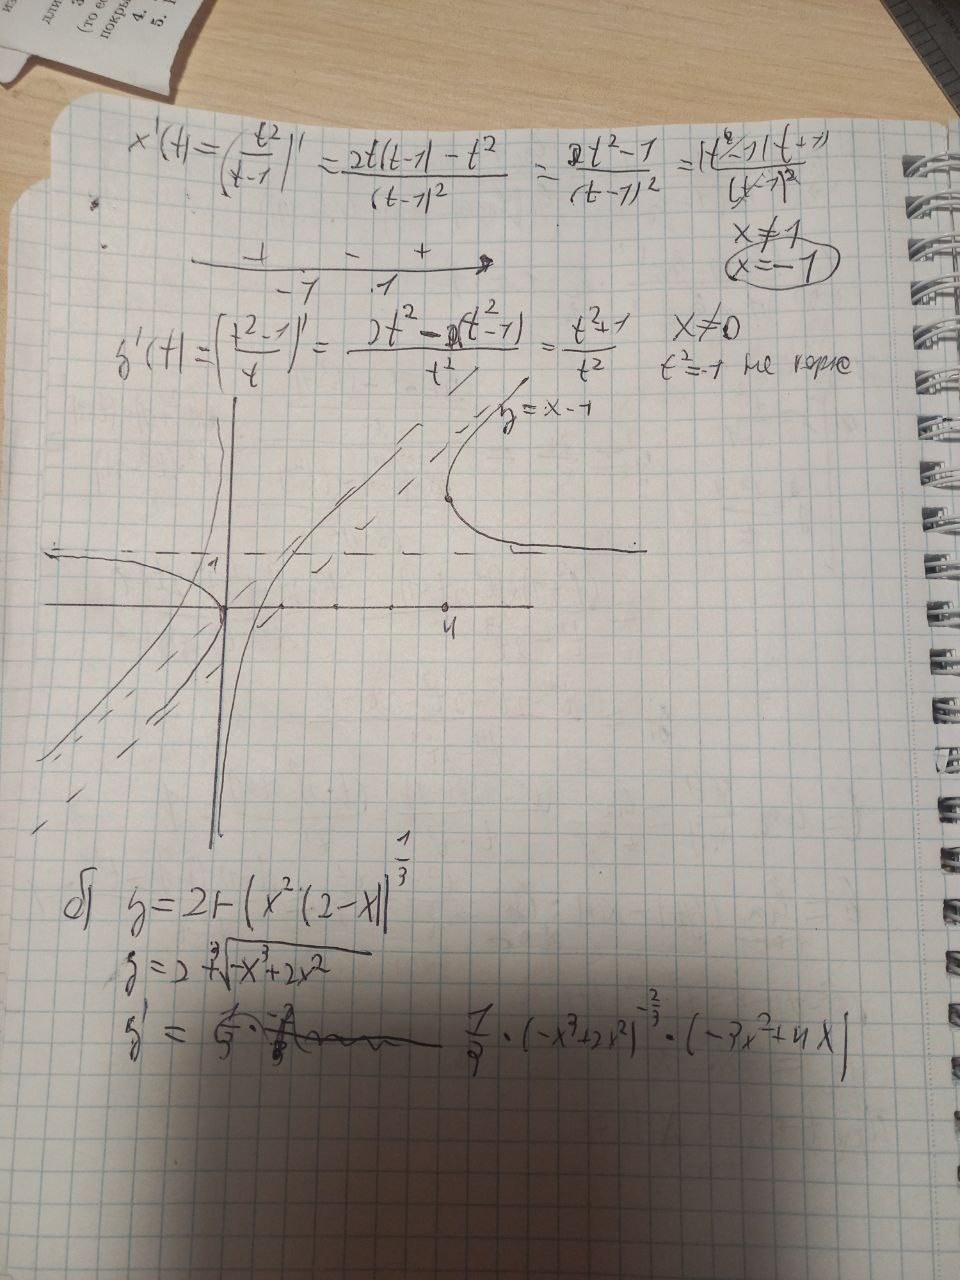 дли
(то ес
покры
4.
5.
x'(t) = (t²/(t-1))' = (2t(t-1) - t²)/(t-1)² = (t²-1)/(t-1)² = ((t-1)(t+1))/(t-1)²
x ≠ 1
x = -1
+ - +
-1 1
y'(t) = ((t²-1)/t)' = (2t² - (t²-1))/t² = (t²+1)/t² x ≠ 0
t² = -1 не
y = x-1
1
4
б) y = 2 + (x²(2-x))^(1/3)
y = 2 + ∛(-x³+2x²)
y' = 1/3 · (-x³+2x²)^(-2/3) · (-3x²+4x)